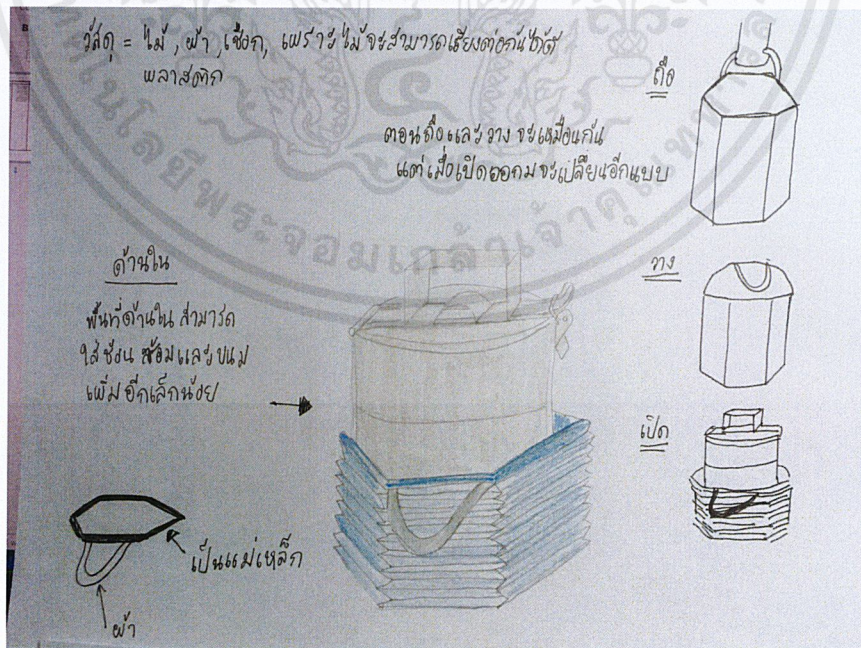 วัสดุ = ไม้, ผ้า, เชือก, เพราะไม้จะสามารถเรียงต่อกันได้ดี
พลาสติก
ถือ
ตอนถือและวาง จะเหมือนกัน
แต่เมื่อเปิดออกมจะเปลี่ยนอีกแบบ
วาง
ด้านใน
พื้นที่ด้านใน สามารถ
ใส่ช้อน ส้อมและขนม
เพิ่มอีกเล็กน้อย
เปิด
เป็นแม่เหล็ก
ผ้า
คโนโลยีพระจอมเกล้าเจ้าคุณทหาร